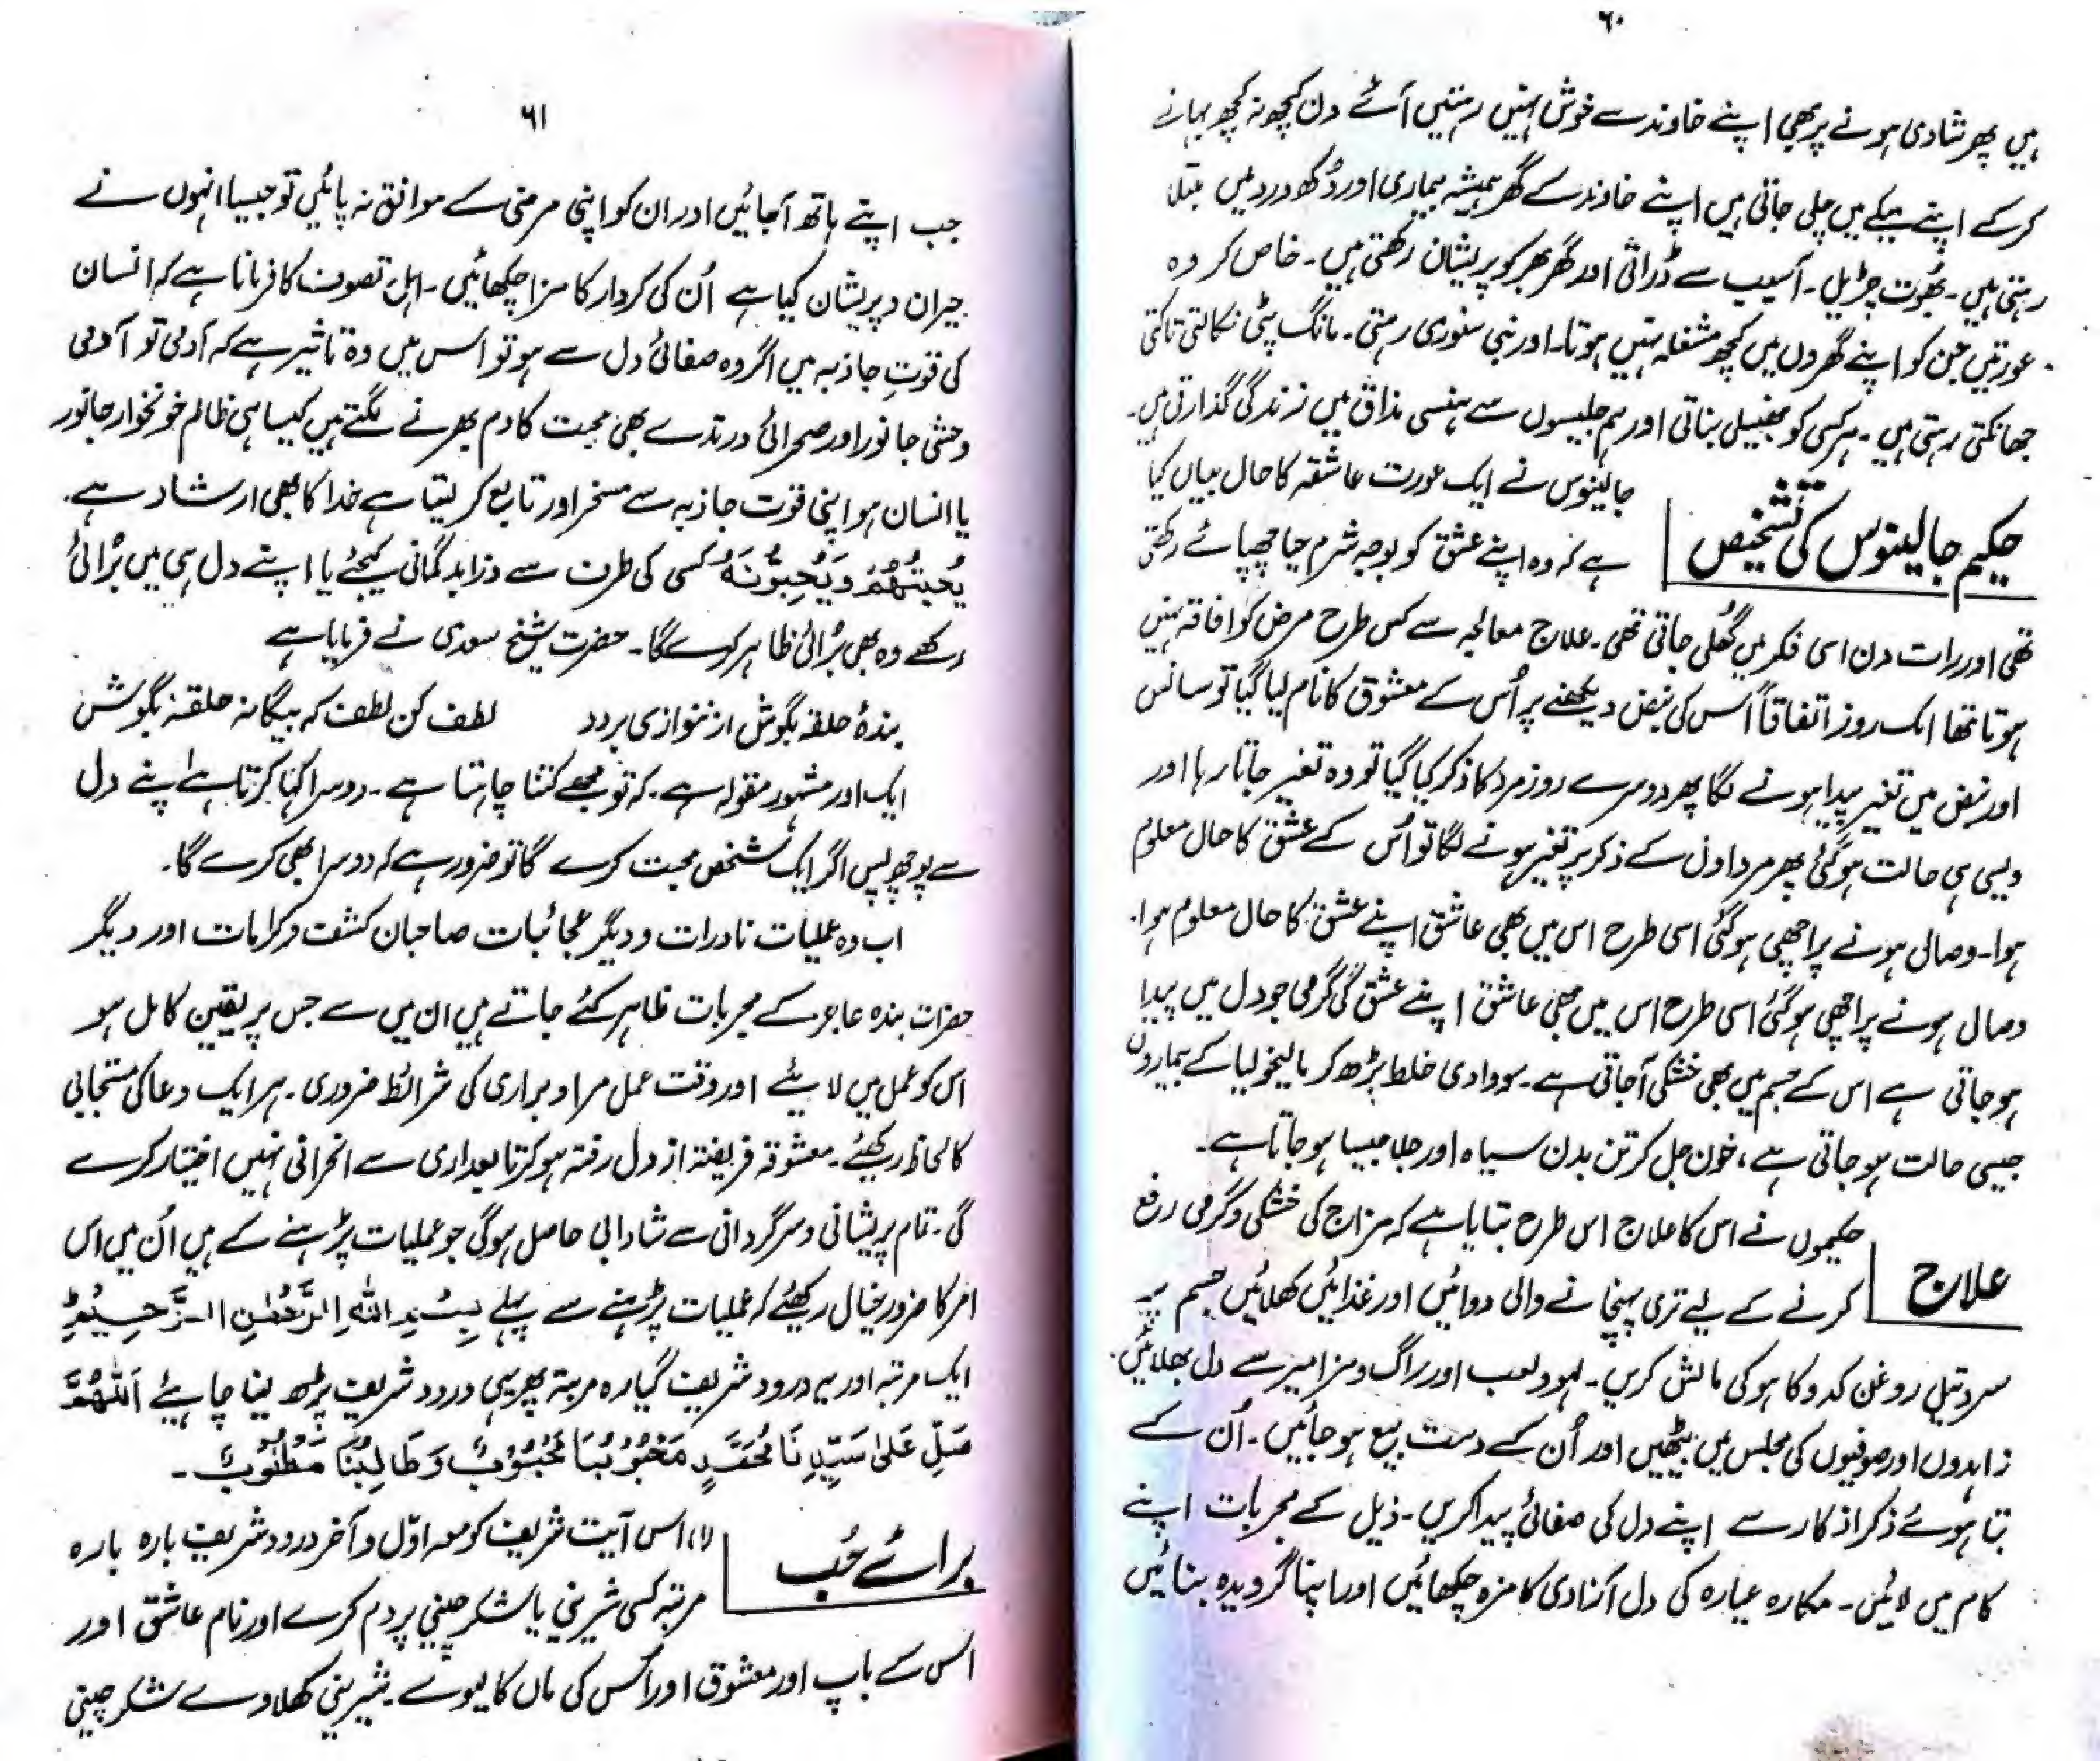 ۶۰
ہیں پھر شادی ہونے پر بھی اپنے خاوند سے خوش نہیں رہتیں آئے دن کچھ نہ کچھ بہانے
کرکے اپنے میکے میں چلی جاتی ہیں اپنے خاوند کے گھر ہمیشہ بیماری اور دُکھ درد میں مبتلا
رہتی ہیں۔ بھُوت چڑیل۔ آسیب سے ڈراتی اور گھر بھر کو پریشان رکھتی ہیں۔ خاص کر وہ
عورتیں جن کو اپنے گھروں میں کچھ مشغلہ نہیں ہوتا۔ اور بنی سنوری رہتی۔ مانگ پٹی نکالتی تاکتی
جھانکتی رہتی ہیں۔ ہر کسی کو بناتی اور ہم جلیسوں سے ہنسی مذاق میں زندگی گذارتی ہیں۔
حکیم جالینوس کی تشخیص
جالینوس نے ایک عورت عاشقہ کا حال بیاں کیا
ہے کہ وہ اپنے عشق کو بوجہ شرم حیا چھپائے رکھتی
تھی اور رات دن اسی فکر میں گھُلی جاتی تھی۔ علاج معالجہ سے کسی طرح مرض کو افاقہ نہیں
ہوتا تھا ایک روز اتفاقاً اُس کی نبض دیکھنے پر اُس کے معشوق کا نام لیا گیا تو سانس
اور نبض میں تغیر پیدا ہونے لگا پھر دوسرے روز مرد کا ذکر کیا گیا تو وہ تغیر جاتا رہا اور
ویسی ہی حالت ہوگئی پھر مرد اول کے ذکر پر تغیر ہونے لگا تو اُس کے عشق کا حال معلوم
ہوا۔ وصالی ہونے پر اچھی ہوگئی اسی طرح اس میں بھی عاشق اپنے عشق کا حال معلوم ہوا۔
وصال ہونے پر اچھی ہوگئی اسی طرح اس میں بھی عاشق اپنے عشق کی گرمی جو دل میں پیدا
ہوجاتی ہے اس کے جسم میں بھی خشکی آجاتی ہے۔ سوداوی خلط بڑھ کر مالیخولیا کے بیماروں
جیسی حالت ہوجاتی ہے، خون جل کر تن بدن سیاہ اور جلا جیسا ہوجاتا ہے۔
علاج
حکیموں نے اس کا علاج اس طرح بتایا ہے کہ مزاج کی خشکی و گرمی رفع
کرنے کے لیے تری پہنچانے والی دوائیں اور غذائیں کھلائیں جسم پہ
سرد تیل روغن کدو کاہو کی مالش کریں۔ لہو و لعب اور راگ و مزامیر سے دل بھلائیں۔
زاہدوں اور صوفیوں کی مجلس میں بیٹھیں اور اُن کے دست بیع ہوجائیں۔ اُن کے
بتا ہوئے ذکر اذکار سے اپنے دل کی صفائی پیدا کریں۔ ذیل کے مجربات اپنے
کام میں لائیں۔ مکارہ عیارہ کی دل آزادی کا مزہ چکھائیں اور اپنا گرویدہ بنائیں
۶۱
جب اپنے ہاتھ آجائیں اور ان کو اپنی مرضی کے موافق نہ پائیں تو جیسا انہوں نے
حیران و پریشان کیا ہے اُن کی کردار کا مزا چکھائیں۔ اہل تصوف کا فرمانا ہے کہ انسان
کی قوتِ جاذبہ میں اگر وہ صفائی دل سے ہو تو اس میں وہ تاثیر ہے کہ آدمی تو آدمی
وحشی جانور اور صحرائی درندے بھی محبت کا دم بھرنے لگتے ہیں کیسا ہی ظالم خونخوار جانور
یا انسان ہو اپنی قوت جاذبہ سے مسخر اور تابع کر لیتا ہے خدا کا بھی ارشاد ہے۔
یُحِبُّهُمْ وَیُحِبُّوْنَهٗ کسی کی طرف سے ذرا بدگمانی کیجئے یا اپنے دل ہی میں بُرائی
رکھے وہ بھی بُرائی ظاہر کرے گا۔ حضرت شیخ سعدی نے فرمایا ہے
بندۂ حلقہ بگوش ار ننوازی بردد لطف کن لطف کہ بیگانہ حلقہ بگوش
ایک اور مشہور مقولہ ہے۔ کہ تو مجھے کتنا چاہتا ہے۔ دوسرا کہا کرتا ہے اپنے دل
سے پوچھ پس اگر ایک شخص محبت کرے گا تو ضرور ہے کہ دوسرا بھی کرے گا۔
اب وہ عملیات نادرات و دیگر عجائبات صاحبان کشف و کرامات اور دیگر
حضرات بندہ عاجز کے مجربات ظاہر کئے جاتے ہیں ان میں سے جس پر یقین کامل ہو
اس کو عمل میں لائیے اور وقت عمل مراد براری کی شرائط ضروری۔ ہر ایک دعا کی مستجابی
کا لحاظ رکھئے۔ معشوقہ فریفتہ از دل رفتہ ہو کر تابعداری سے انحرافی نہیں اختیار کرے
گی۔ تمام پریشانی و سرگردانی سے شادابی حاصل ہوگی جو عملیات پڑہنے کے ہیں اُن میں اس
امر کا ضرور خیال رکھئے کہ عملیات پڑہنے سے پہلے بِسْمِ اللّٰهِ الرَّحْمٰنِ الرَّحِیْمِ
ایک مرتبہ اور یہ درود شریف گیارہ مرتبہ پھر یہی درود شریف پڑھ لینا چاہئے اَللّٰهُمَّ
صَلِّ عَلٰی سَیِّدِنَا مُحَمَّدٍ مَحْبُوْبُنَا مَحْبُوْبٌ وَطَالِبُنَا مَطْلُوْبٌ۔
برائے حُب
(۱) اس آیت شریف کو معہ اوّل و آخر درود شریف بارہ بارہ
مرتبہ کسی شرینی یا شکر چینی پر دم کرے اور نام عاشق اور
اس کے باپ اور معشوق اور اُس کی ماں کا لیوے۔ شیرینی کھلاوے شکر چینی